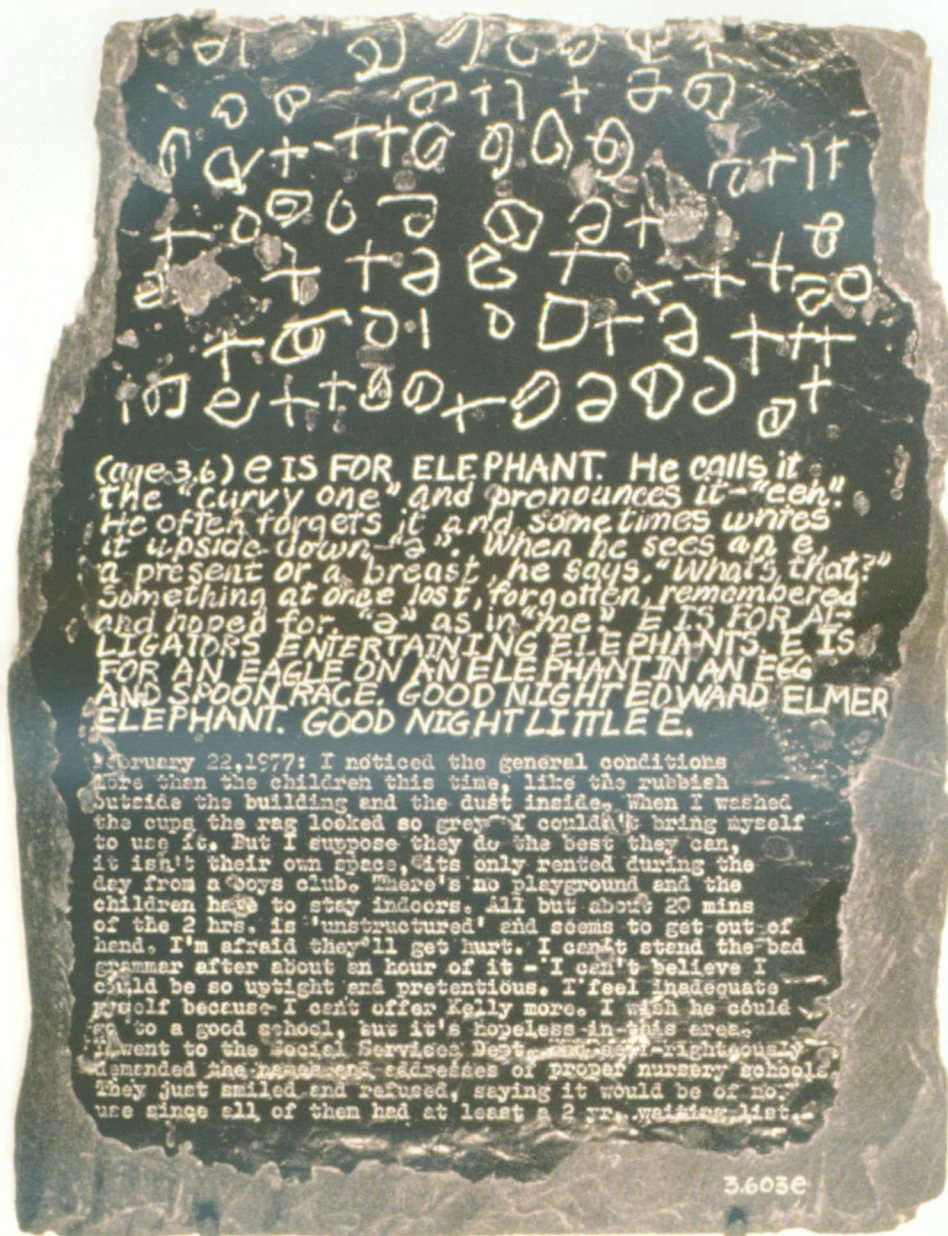 (age 3.6) e IS FOR ELEPHANT. He calls it
the "curvy one" and pronounces it-"eeh".
He often forgets it and sometimes writes
it upside-down-"ə". When he sees an e,
a present or a breast, he says, "What's that?"
Something at once lost, forgotten, remembered
and hoped for. "ə" as in "me" E IS FOR AL-
LIGATORS ENTERTAINING ELEPHANTS. E IS
FOR AN EAGLE ON AN ELEPHANT IN AN EGG
AND SPOON RACE. GOOD NIGHT EDWARD ELMER
ELEPHANT. GOOD NIGHT LITTLE E.
February 22,1977: I noticed the general conditions
more than the children this time, like the rubbish
outside the building and the dust inside. When I washed
the cups the rag looked so grey I couldn't bring myself
to use it. But I suppose they do the best they can,
it isn't their own space, its only rented during the
day from a boys club. There's no playground and the
children have to stay indoors. All but about 20 mins
of the 2 hrs. is 'unstructured' and seems to get out of
hand. I'm afraid they'll get hurt. I can't stand the bad
grammar after about an hour of it - I can't believe I
could be so uptight and pretentious. I feel inadequate
myself because I can't offer Kelly more. I wish he could
go to a good school, but it's hopeless in this area.
I went to the Social Services Dept. and self-righteously
demanded the names and addresses of proper nursery schools.
They just smiled and refused, saying it would be of no
use since all of then had at least a 2 yr. waiting list.
3.603e